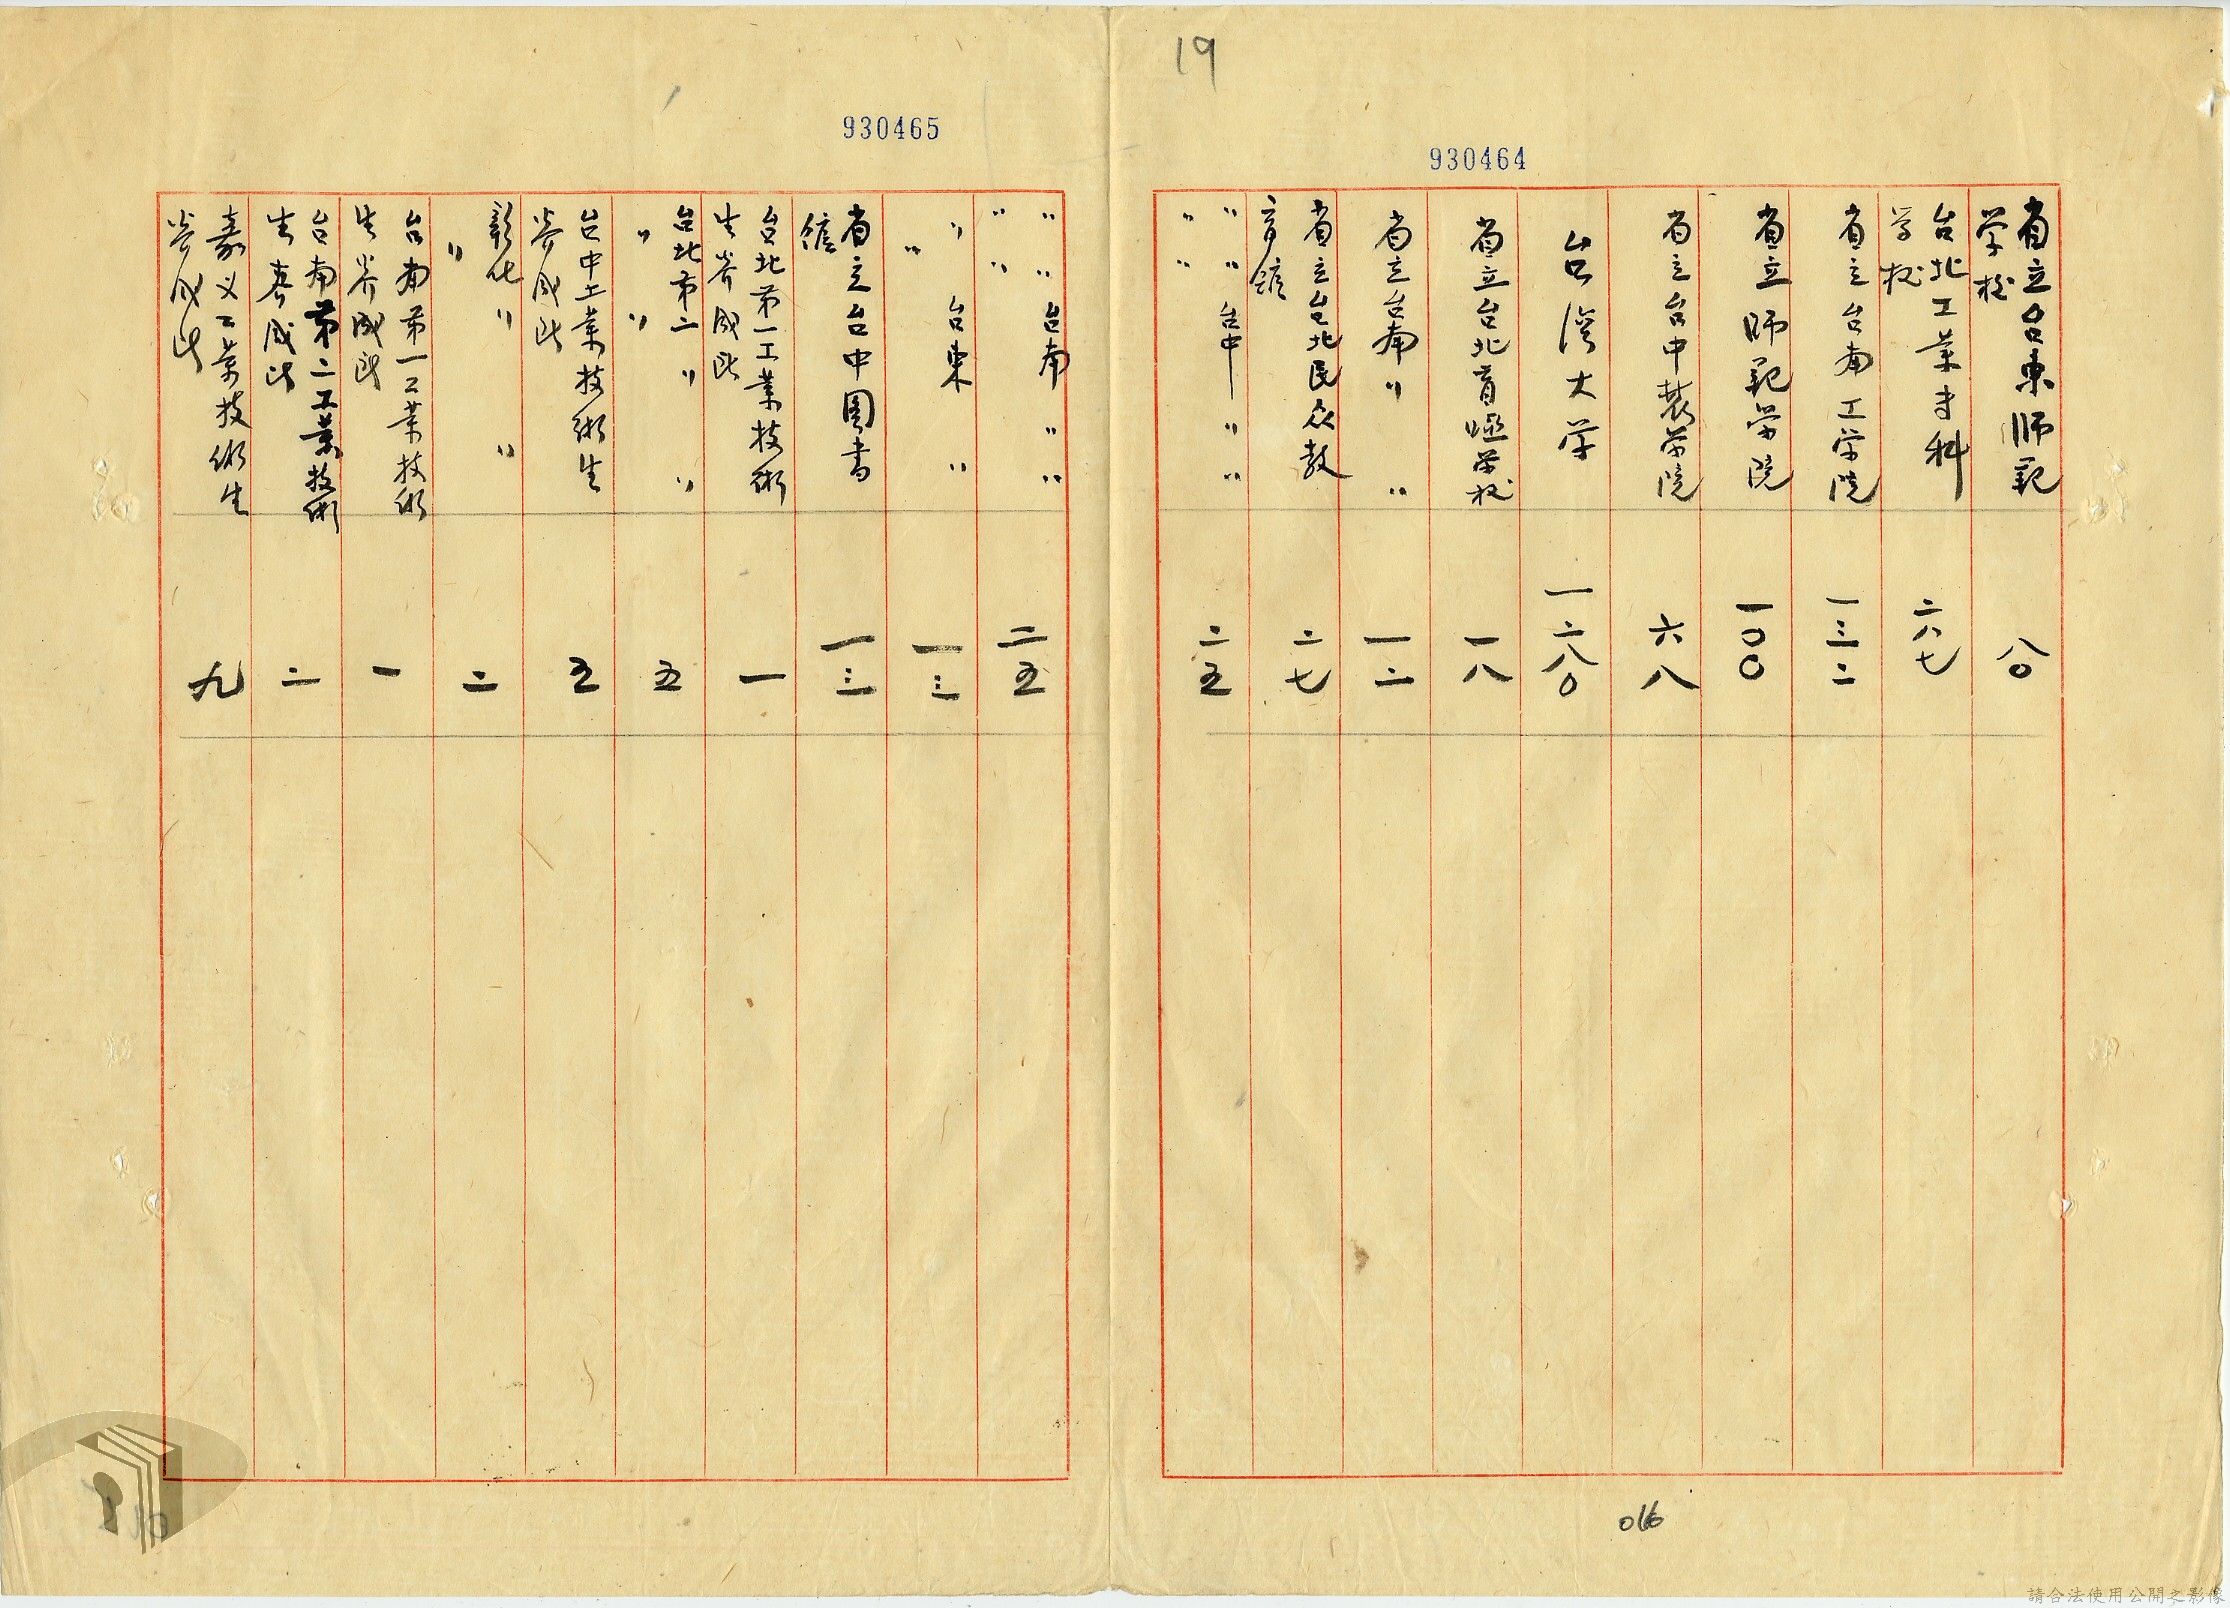 19
930464
省立台東師範
学校
八〇
台北工業专科
学校
二六七
省立台南工学院
一三二
省立師範学院
一〇〇
省立台中農学院
六八
台湾大学
一二八〇
省立台北盲啞学校
一八
省立台南〃〃
一二
省立台北民众教
育館
二七
〃〃台中〃〃
〃〃
二五
016
930465
〃〃台南〃〃
〃〃
二五
〃台東〃
〃
一三
省立台中图書
館
一三
台北第一工業技術
生养成所
一
台北第二〃〃
〃〃
五
台中工業技術生
养成所
五
彰化〃〃
〃
二
台南第一工業技術
生养成所
一
台南第二工業技術
生养成所
二
嘉义工業技術生
养成所
九
請合法使用公開之影像